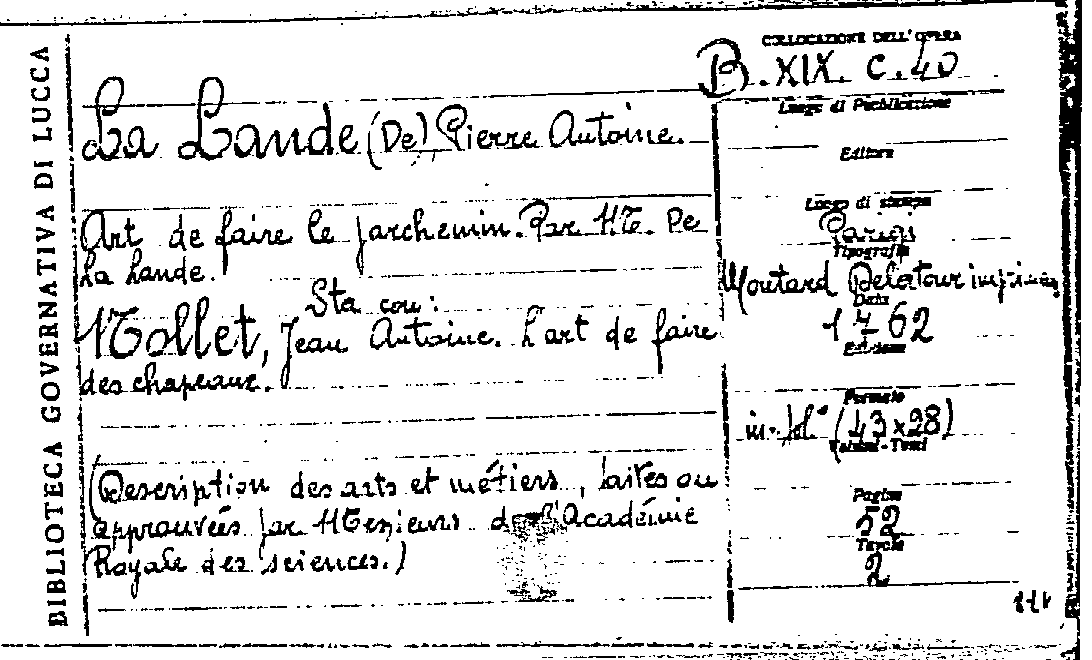 BIBLIOTECA GOVERNATIVA DI LUCCA
La Lande (De) Pierre Antoine.
Art de faire le parchemin. Par M. De
la Lande.
Sta con:
Nollet, Jean Antoine. L'art de faire
des chapeaux.
(Description des arts et métiers, faites ou
approuvées par Messieurs de l'Académie
Royale des sciences.)
COLLOCAZIONE DELL'OPERA
B. XIX. c. 40
Luogo di Pubblicazione
Editore
Luogo di stampa
Paris
Tipografia
Moutard Delatour
Data
1762
Edizione
Formato
in-fol° (43x28)
Volumi-Tomi
Pagine
52
Tavole
2